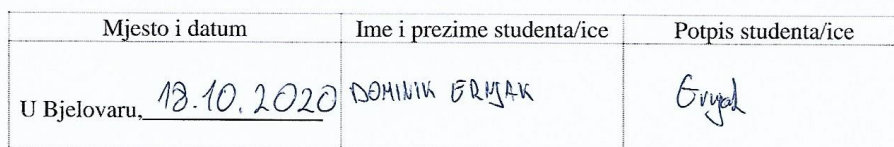 Mjesto i datum Ime i prezime studenta/ice Potpis studenta/ice
U Bjelovaru, 18.10.2020 DOMINIK